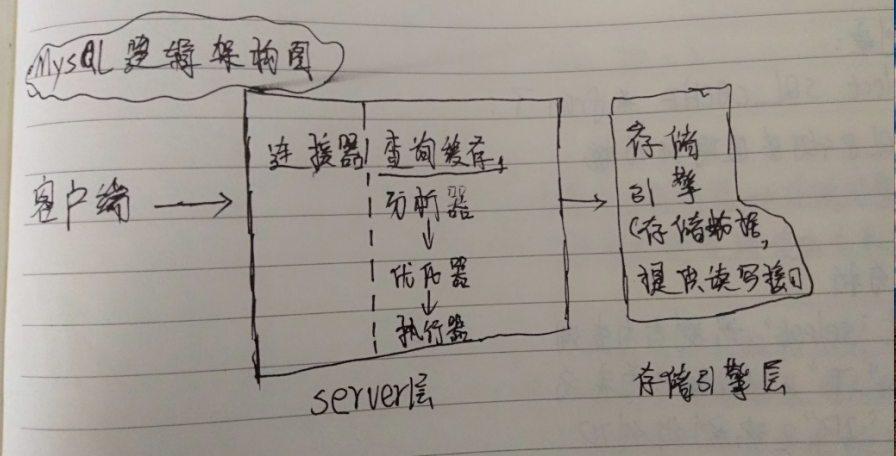 MySQL逻辑架构图
客户端
连接器
查询缓存,
分析器
优化器
执行器
存储
引擎
(存储数据,
提供读写接口
server层
存储引擎层